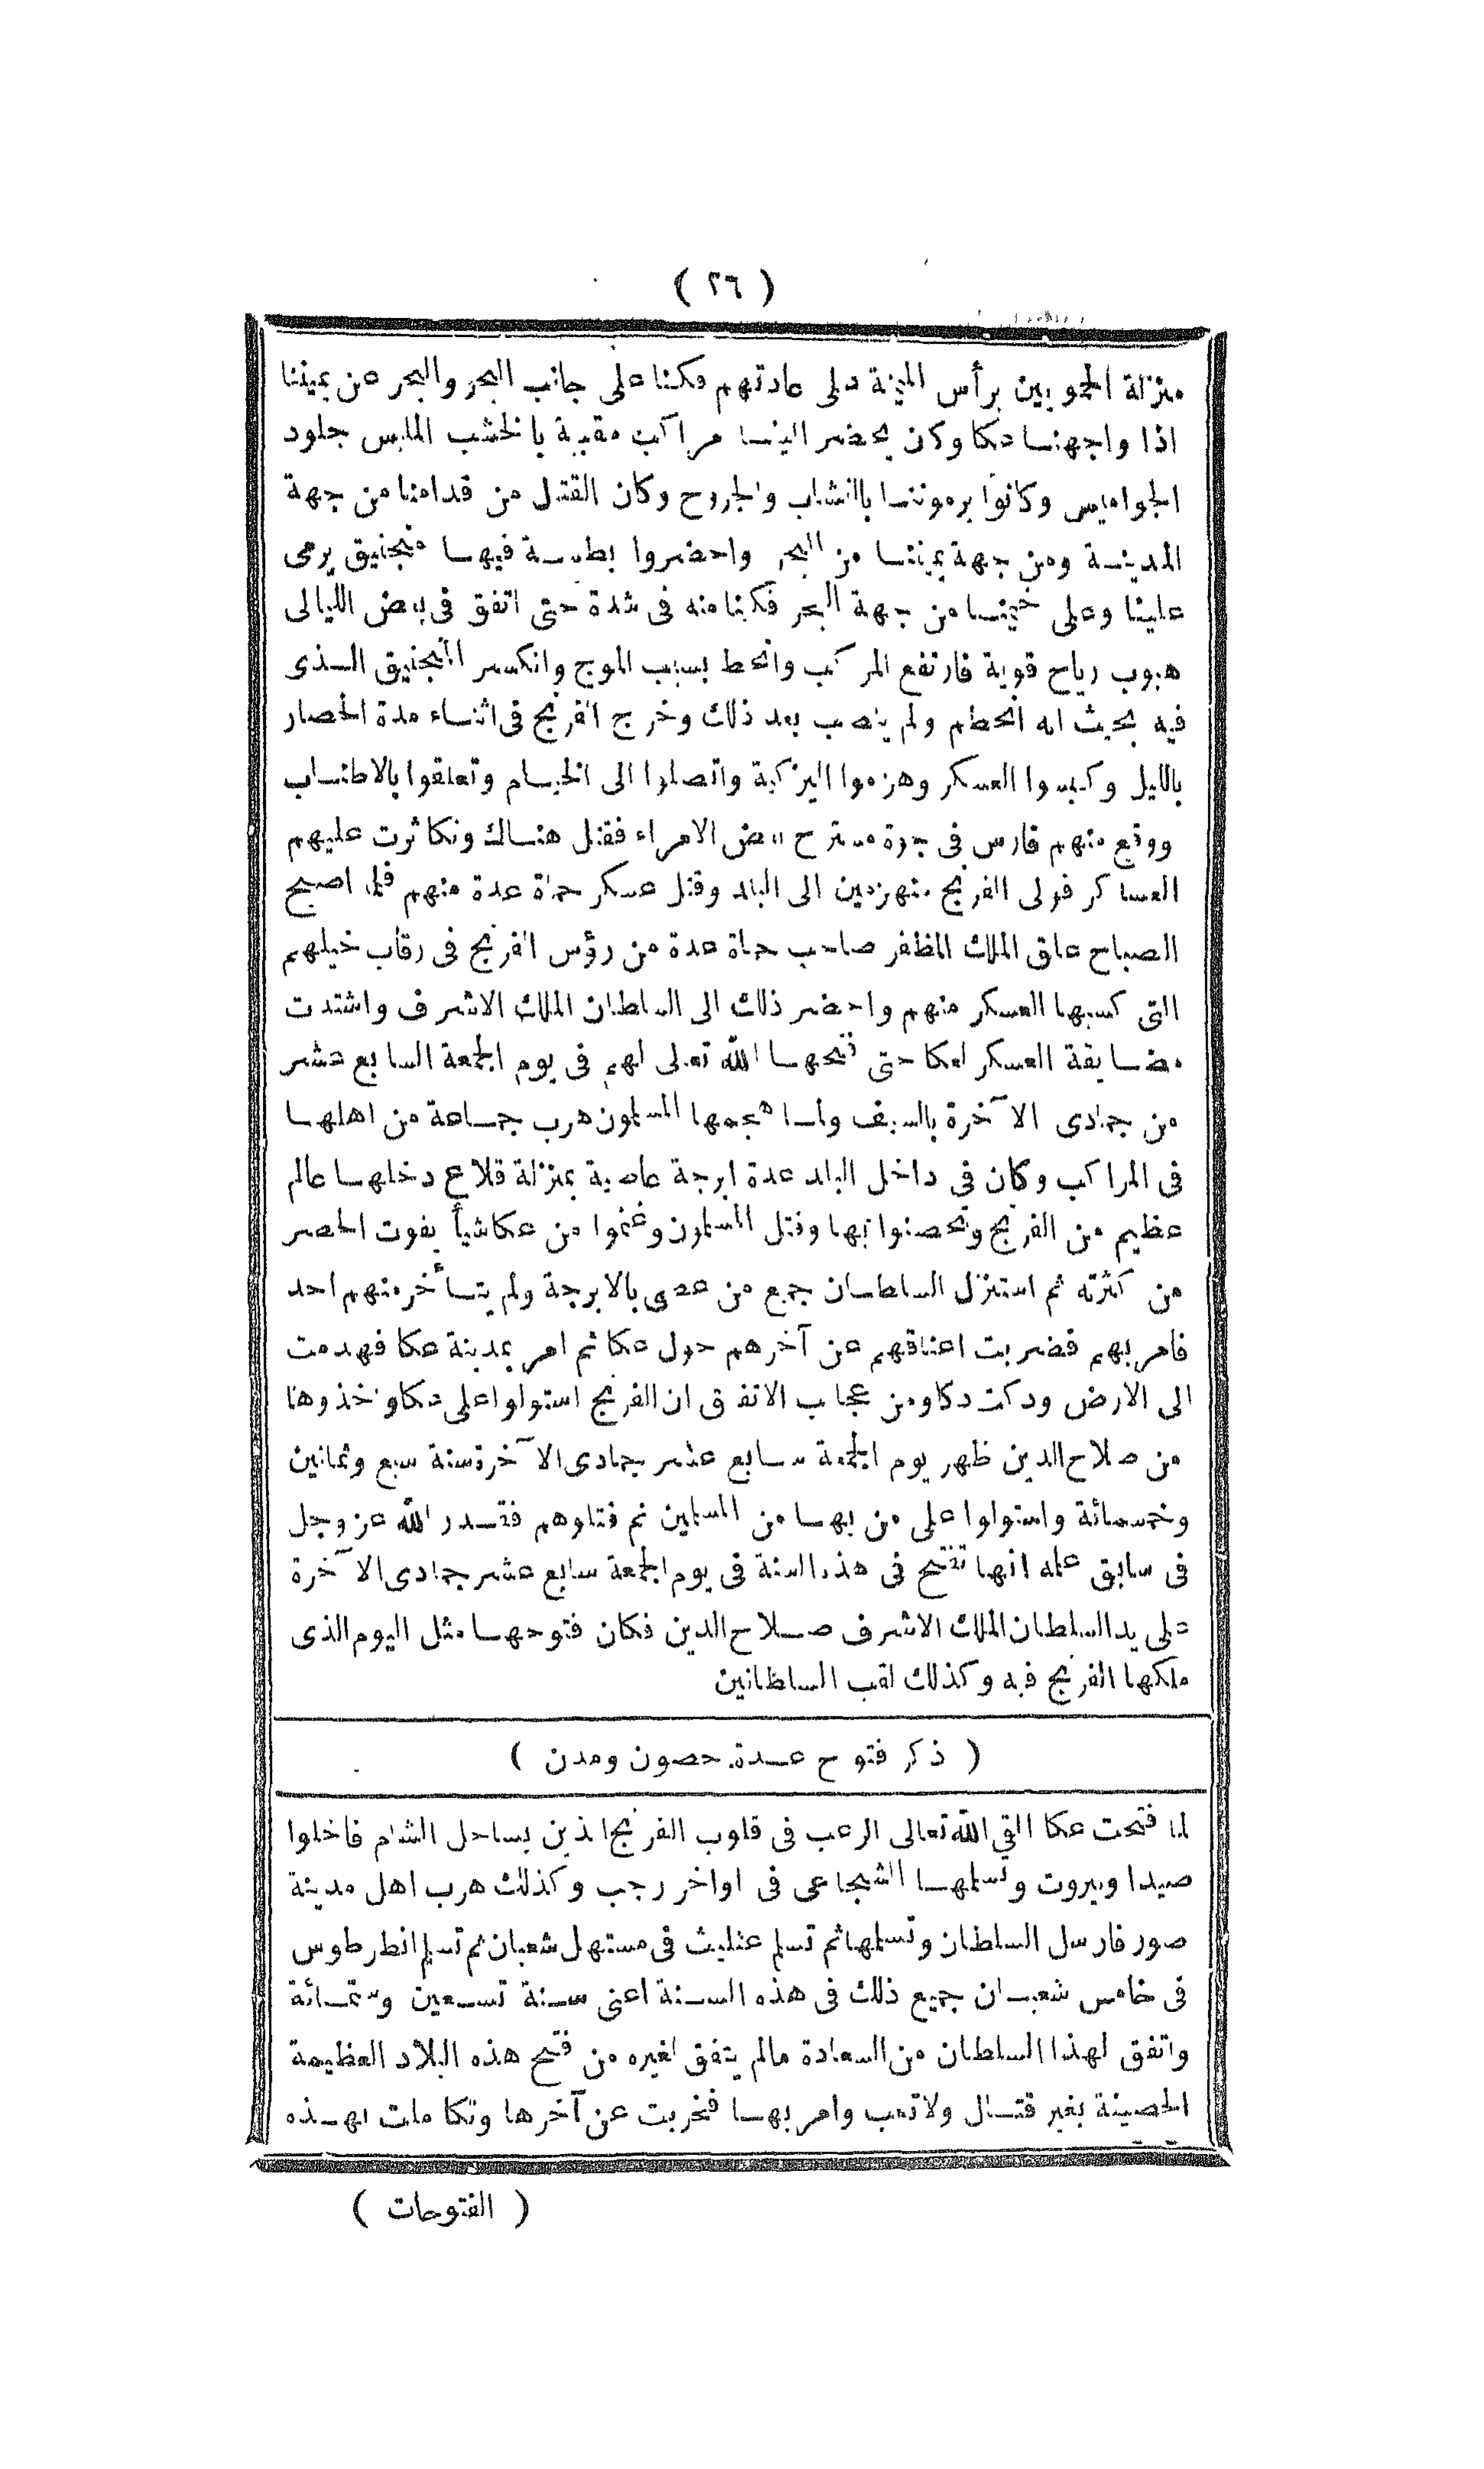 ( ٢٦ )
منزلة الحمويين برأس الميمنة على عادتهم فكنا على جانب البحر والبحر عن يميننا
اذا واجهنا عكا وكان يحضر الينا مراكب مقببة بالخشب الملبس جلود
الجواميس وكانوا يرموننا بالنشاب والجروح وكان القتال من قدامنا من جهة
المدينة ومن جهة يميننا من البحر واحضروا بطسة فيها منجنيق يرمى
علينا وعلى خيمنا من جهة البحر فكنا منه فى شدة حتى اتفق فى بعض الليالى
هبوب رياح قوية فارتفع المركب وانحط بسبب الموج وانكسر المنجنيق الذى
فيه بحيث انه انحطم ولم ينصب بعد ذلك وخرج الفرنج فى اثناء مدة الحصار
بالليل وكبسوا العسكر وهزموا اليزكية واتصلوا الى الخيام وتعلقوا بالاطناب
ووقع منهم فارس فى جورة مستراح بعض الامراء فقتل هناك وتكاثرت عليهم
العساكر فولى الفرنج منهزمين الى البلد وقتل عسكر حماة عدة منهم فلما اصبح
الصباح علق الملك المظفر صاحب حماة عدة من رؤس الفرنج فى رقاب خيلهم
التى كسبها العسكر منهم واحضر ذلك الى السلطان الملك الاشرف واشتدت
مضايقة العسكر لعكا حتى فتحها الله تعالى لهم فى يوم الجمعة السابع عشر
من جمادى الآخرة بالسيف ولما هجمها المسلمون هرب جماعة من اهلها
فى المراكب وكان فى داخل البلد عدة ابرجة عاصية بمنزلة قلاع دخلها عالم
عظيم من الفرنج وتحصنوا بها وقتل المسلمون وغنموا من عكا شيأ يفوت الحصر
من كثرته ثم استنزل السلطان جميع من عصى بالابرجة ولم يتأخر منهم احد
فامر بهم فضربت اعناقهم عن آخرهم حول عكا ثم امر بمدينة عكا فهدمت
الى الارض ودكت دكا ومن عجايب الاتفاق ان الفرنج استولوا على عكا واخذوها
من صلاح الدين ظهر يوم الجمعة سابع عشر جمادى الآخرة سنة سبع وثمانين
وخمسمائة واستولوا على من بها من المسلمين ثم قتلوهم فقدر الله عز وجل
فى سابق علمه انها تفتح فى هذه السنة فى يوم الجمعة سابع عشر جمادى الآخرة
على يد السلطان الملك الاشرف صلاح الدين فكان فتوحها مثل اليوم الذى
ملكها الفرنج فيه وكذلك لقب السلطانين
( ذكر فتوح عدة حصون ومدن )
لما فتحت عكا القى الله تعالى الرعب فى قلوب الفرنج الذين بساحل الشام فاخلوا
صيدا وبيروت وتسلمها الشجاعى فى اواخر رجب وكذلك هرب اهل مدينة
صور فارسل السلطان وتسلمها ثم تسلم عثليث فى مستهل شعبان ثم تسلم انطرطوس
فى خامس شعبان جميع ذلك فى هذه السنة اعنى سنة تسعين وستمائة
واتفق لهذا السلطان من السعادة مالم يتفق لغيره من فتح هذه البلاد العظيمة
الحصينة بغير قتال ولا تعب وامر بها فخربت عن آخرها وتكاملت بهذه
( الفتوحات )